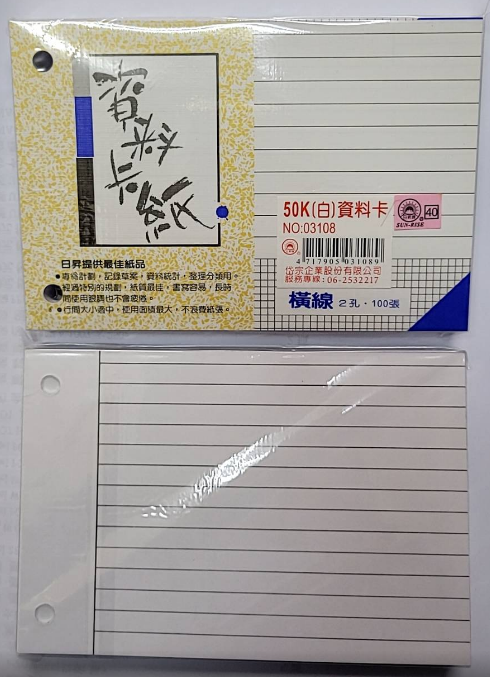 資料卡紙
50K(白)資料卡
NO:03108
40
SUN-RISE
4 717905 031089
岱宗企業股份有限公司
服務專線:06-2532217
橫線 2孔·100張
日昇提供最佳紙品
●專為計劃,記錄草案,資料統計,整理分類用。
經過特別的規劃,紙質最佳,書寫容易,長時
間使用眼睛也不會疲倦。
●行間大小適中,使用面積最大,不浪費紙張。